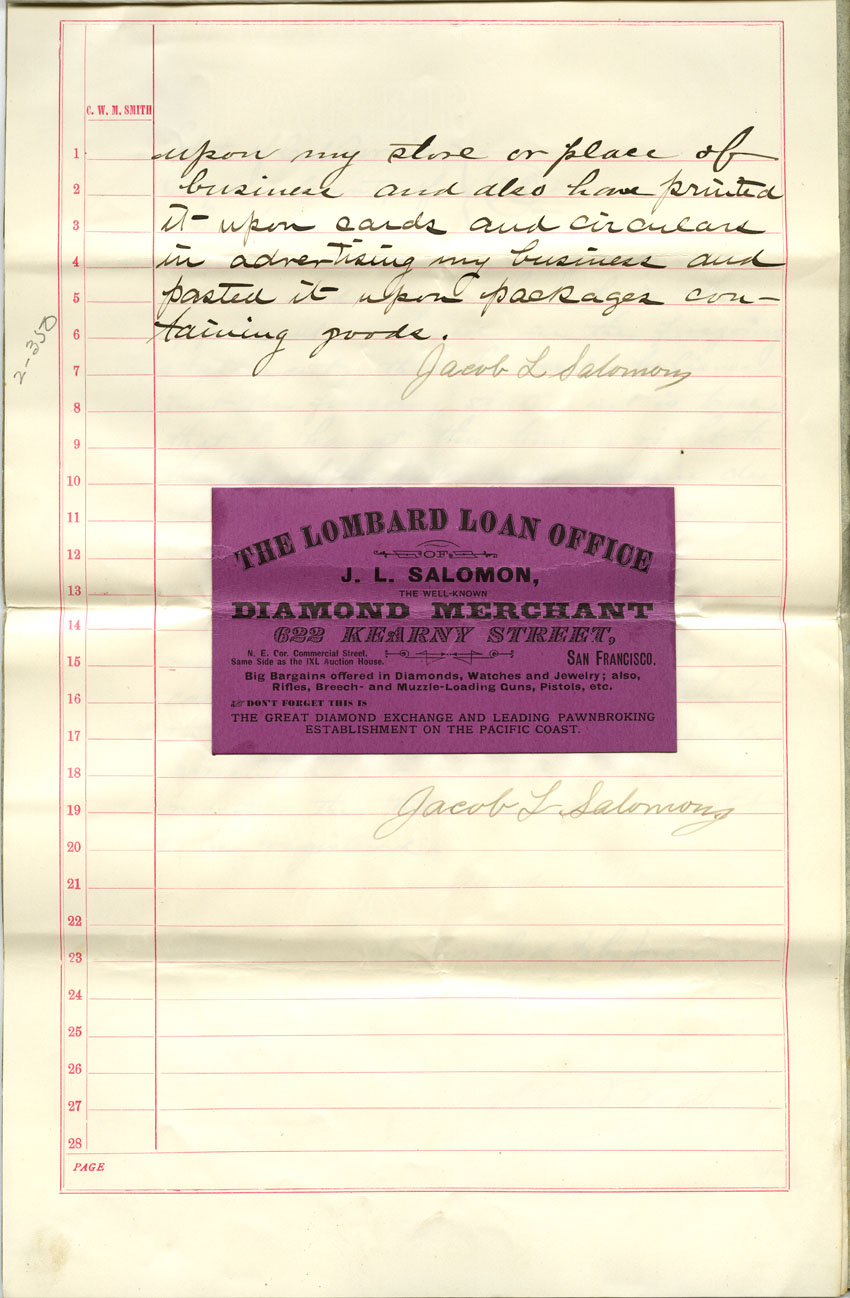 C. W. M. SMITH
1 upon my store or place of
2 business and also have printed
3 it upon cards and circulars
4 in advertising my business and
5 pasted it upon packages con-
6 taining goods.
7 Jacob L Salomon
8
9
10
11
12
13
14
15
16
17
18
19
20
21
22
23
24
25
26
27
28
PAGE
2-350
THE LOMBARD LOAN OFFICE
OF
J. L. SALOMON,
THE WELL-KNOWN
DIAMOND MERCHANT
622 KEARNY STREET,
N. E. Cor. Commercial Street.
Same Side as the IXL Auction House.
SAN FRANCISCO.
Big Bargains offered in Diamonds, Watches and Jewelry; also,
Rifles, Breech- and Muzzle-Loading Guns, Pistols, etc.
DON'T FORGET THIS IS
THE GREAT DIAMOND EXCHANGE AND LEADING PAWNBROKING
ESTABLISHMENT ON THE PACIFIC COAST.
Jacob L. Salomon